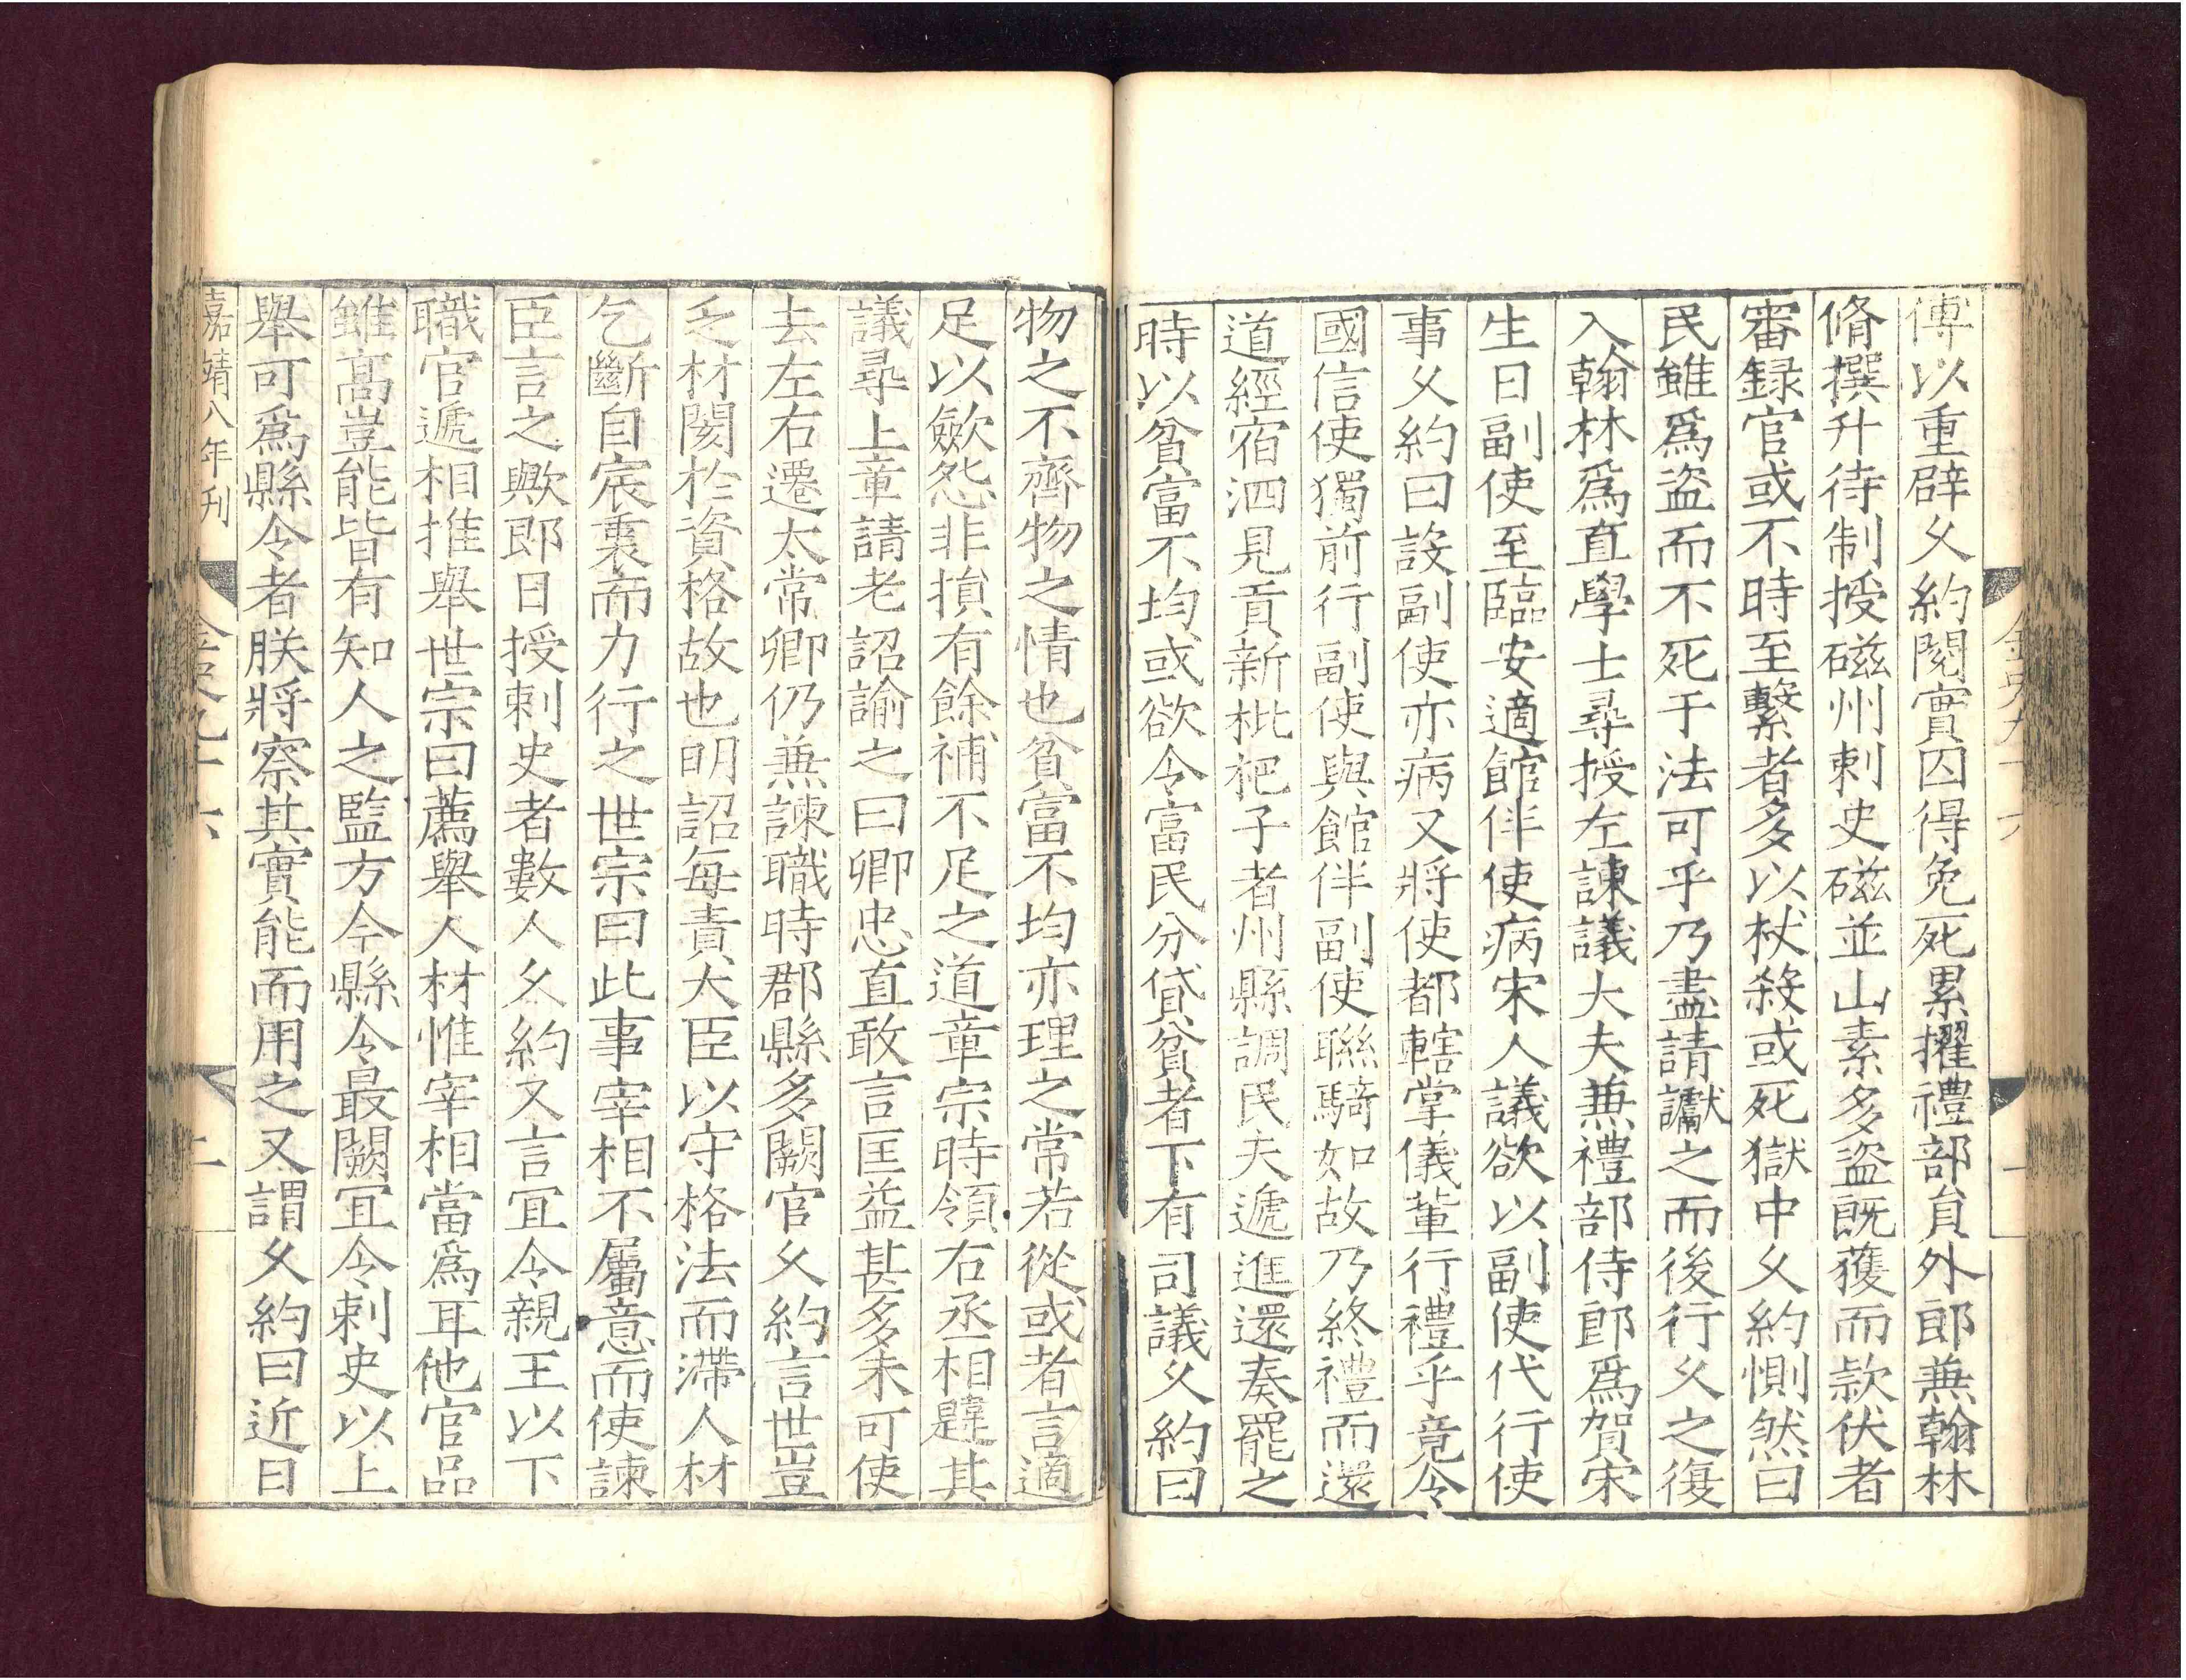 傅以重辟乂約閱實囚得免死累擢禮部員外郎兼翰林
脩撰升待制授磁州刺史磁並山素多盜既獲而款伏者
審録官或不時至繫者多以杖殺或死獄中乂約惻然曰
民雖爲盜而不死于法可乎乃盡請讞之而後行乂之復
入翰林爲直學士尋授左諫議大夫兼禮部侍郎爲賀宋
生日副使至臨安適館伴使病宋人議欲以副使代行使
事乂約曰設副使亦病又將使都轄掌儀輩行禮乎竟令
國信使獨前行副使與館伴副使聯騎如故乃終禮而還
道經宿泗見貢新枇杷子者州縣調民夫遞進還奏罷之
時以貧富不均或欲令富民分貸貧者下有司議乂約曰
金史九十六
物之不齊物之情也貧富不均亦理之常若從或者言適
足以歛怨非損有餘補不足之道章宗時領右丞相韙其
議尋上章請老詔諭之曰卿忠直敢言匡益甚多未可使
去左右遷太常卿仍兼諫職時郡縣多闕官乂約言世豈
乏材閡於資格故也明詔每責大臣以守格法而滯人材
乞斷自宸衷而力行之世宗曰此事宰相不屬意而使諫
臣言之歟即日授刺史者數人乂約又言宜令親王以下
職官遞相推舉世宗曰薦舉人材惟宰相當爲耳他官品
雖高豈能皆有知人之監方今縣令最闕宜令刺史以上
舉可爲縣令者朕將察其實能而用之又謂乂約曰近日
嘉靖八年刊
金史九十六
二